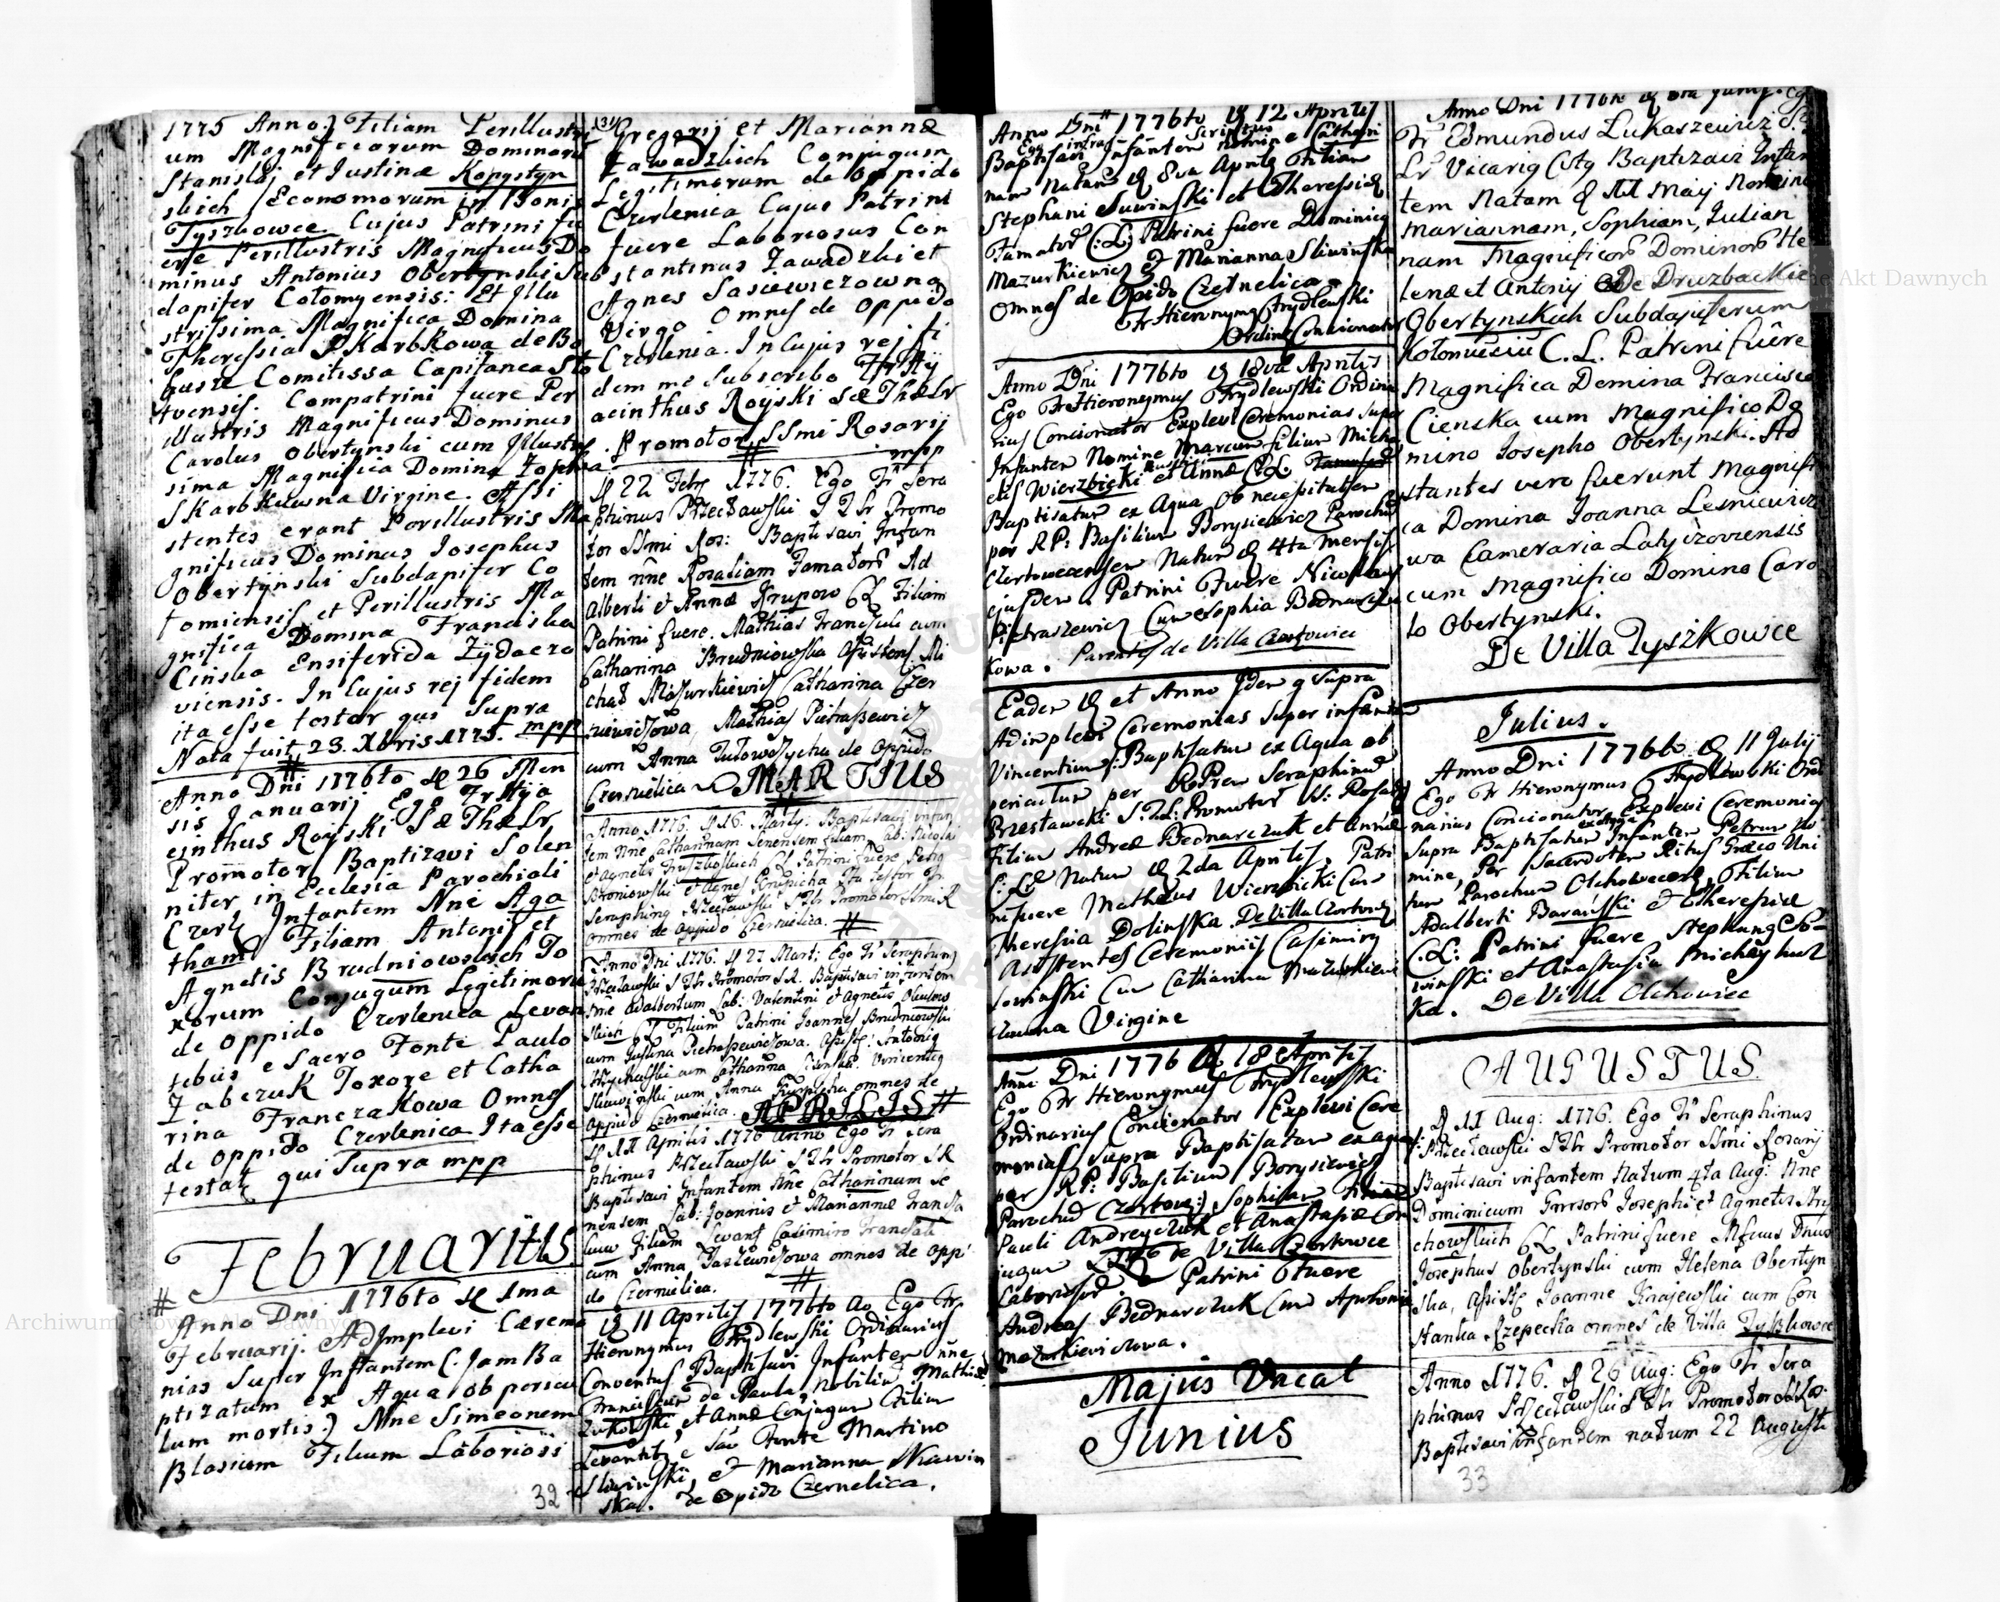 1775 Anno.) Filiam Perillustri
um Magnificorum Dominoru
Stanislaj et Justinæ Kopystyn
skich /Economorum in Bonis
Tyszkowce Cujus Patrini fu
ere Perillustris Magnificus Do
minus Antonius Obertynski Sub
dapifer Colomyensis: Et Illu
strissima Magnifica Domina
Theressia SKarbKowa de Bo
gusze Comitissa Capitanea
tvensis. Compatrini fuere Per
illustris Magnificus Dominus
Carolus Obertynski cum Illustris
sima Magnifica Domina Zophia
SKarbKuwna Virgine. Assi
stentes erant Perillustris Ma
gnificus Dominus Josephus
Obertynski Subdapifer Co
lomiensis et Perillustris Ma
gnifica Domina Franciska
Cinska Ensiferida Zydaczo
viensis. In Cujus rej fidem
ita esse testor qui Supra
Nata fuit 23. Xbris 1775. mpp
Anno Dni 1776to d 26 Men
sis Januarij Ego Fr Hya
cinthus Royski S æ Thæ Lr
Promotor Baptizavi Solen
niter in Ecclesia Parochiali
Czerl Infantem Nne Aga
tham Filiam Antonij et
Agnetis Brudniowskich To
xorum Conjugum Legitimoru
de Oppido Czerlenica Levan
tebus e Sacro Fonte Paulo
Zabczuk Toxore et Catha
rina FranczaKowa Omnes
de Oppido Czerlenica Ita esse
testat qui Supra mpp
Februarius
# Anno Dni 1776to d 1ma
Februarij. AdImplevi Cærem
nias Super Infantem (. Jam Ba
ptizatum ex Aqua ob pericu
lum mortis.) Nne Simeonem
Blasium Filium Laboriosi
32
(31)
Gregorij et Mariannæ
Zawadzkich Conjugum
Legitimorum de Oppido
Czerlenica Cujus Patrini
fuere Laboriosus Con
stantinus Zawadzki et
Agnes Sasiewiczowna
Virgo Omnes de Oppido
Czerlenica. In Cujus rej fi
dem me Subscribo Fr Hy
acinthus Royski S æ Th æ Lr
Promotor SSmi Rosarij
mpp
d 22 Febr 1776. Ego Fr Sera
phinus Przecławski S Th Promo
tor SSmi Ros: Baptisavi Infan
tem nne Rosaliam Famator Ad
Alberti et Annæ Krupow CL Filiam
Patrini fuere. Mathias Franciszk cum
Catharina Brudniowska Assistens Mi
chał Mazurkiewicz Catharina Czer
niewiczowa, Mathias Pietraszewicz
cum Anna Tułowczycka de Oppido
Czernelica MARTIUS
Anno 1776. d 16. Martij: Baptisavi infan
tem Nne Catharinam Senensem filiam Lab: Nicolai
et Agnetis Hruszkoskich CL Patrini fuere Georg
Broniowski et Agnes Krupicka Ita testor Fr
Seraphinus Przecławski S Th Promotor SSmi R
omnes de Oppido Czernelica. #
Anno Dni 1776. d 27 Mart: Ego Fr Seraphinus
Przecławski S Th Promotor S R. Baptisavi infantem
Nne Adalbertum Lab: Valentini et Agnetis
skich CL Filium Patrini Joannes Brudniowski
cum Justina Pietraszewiczowa. Assist: Antonius
cum Catharina Vincentius
Sliwinski cum Anna Krupicka omnes de
Oppido Czernelica. APRILIS #
d 11 Aprilis 1776 anno Ego Fr Sera
phinus Przecławski S Th Promotor S R
Baptisavi Infantem Nne Catharinam Se
nensem Lab: Joannis et Mariannæ Francza
kuw Filiam Levant Casimiro Franczak
cum Anna Jaszewiczowa omnes de Opp
do Czernelica. #
d 11 Aprilis 1776to Ao Ego Fr.
Hieronymus Frydlewski Ordinarius
Conventus Baptisavi Infantem nne
Franciscum de Paula, Nobiliu Mathiæ
Zukowski, et Annæ Conjugum Filium
Levantib e Sao Fonte Martino
Sliwinski et Marianna Skawin
ska. de Opido Czernelica.
Anno Dni 1776to d 12 Aprilis
Ego infra Scriptus
Baptisavi Infantem nomine Cathari
nam Natam d 8va Aprilis Filiam
Stephani Suwinski et Theressiæ
Famator (: L:) Patrini fuere Dominicus
Mazurkiewicz et Marianna Sliwinska
Omnes de Opido Czernelica
Fr Hieronymus Frydlewski
Ordin Concionator
Anno Dni 1776to d 18va Aprilis
Ego Fr Hieronymus Frydlewski Ordina
rius Concionator Explevi Ceremonias Super
Infantem Nomine Marcum filium Micha
elis Wierzbicki et Annæ C.L.
Baptisatum ex Aqua Ob necessitatem
per RP: Basilium Borysiewicz Parochum
Czortowecensem Natum d 4ta Mensis
ejusdem Patrini Fuere Nicolaus
Pietraszewicz Cum Sophia Bednarczu
kowa. Parentes de Villa Czortowice
Eadem d et Anno Idem q Supra
Adimplevi Ceremonias Super infantem
Vincentium: Baptisatum ex Aqua ob
periculum per RPrem Seraphinum
Przesławski S.Th: Promotor SS: Rosarij
filium Andreæ Bednarczuk et Annæ
C: L: Natum d 2da Aprilis, Patri
ni fuere Matheus Wierzbicki Cum
Theressia Dolinska De Villa Czortowice
Assistentes Ceremoniis Casimirus
Sowinski Cum Catharina Mazurkiewi
czuwna Virgine
Anno Dni 1776 d 18 Aprilis
Ego Fr Hieronymus Frydlewski
Ordinarius Concionator Explevi Cere
monias Supra Baptisatam ex aqua
per RP: Basilium Borysiewicz
Parochum Czortowe:, Sophiam Filiam
Pauli Andreyczuk et Anastasiæ Con
jugum de Villa Czortowce
Laboriosor Patrini Fuere
Andreas Bednarczuk Cum Apolonia
Mazurkiewiczowa.
Majus Vacat
Junius
Anno Dni 1776to d 8va Junij. Ego
Fr Edmundus Lukaszewicz S.T.
Lr Vicarius Baptizavi Infan
tem Natam d XX Maij Nomine
Mariannam, Sophiam, Juliam
nam Magnificor Dominor He
lenæ et Antonij De Druzbackie
Obertynskich Subdapiferum
C. L. Patrini fuere
Magnifica Domina Francisca
Cienska cum Magnifico Do
mino Josepho Obertynski. Ad
stantes vero fuerunt Magnifi
ca Domina Joanna Lesniewicz
wa Cameraria Latyczoviensis
cum Magnifico Domino Caro
lo Obertynski.
De Villa Tyszkowce
Julius.
Anno Dni 1776to d 11 Julij
Ego Fr Hieronymus Frydlewski Ordi
narius Concionator Explevi Ceremonias
Supra Baptisatum ex Aqua Infantem Petrum No
mine, Per Sacerdotem Ritus Græco Uni
tum Parochum Olchowecens, Filium
Adalberti Baranski et Theresiæ
C.L: Patrini fuere Stephanus So
winski et Anastasia Michayluczk
Ka. De Villa Olchowiec
AUGUSTUS
d 11 Aug: 1776. Ego Fr Seraphinus
Przecławski S Th Promotor SSmi Rosarij
Baptisavi infantem Natum 4ta Aug: Nne
Dominicum Josephi et Agnetis
chowskich CL Patrini fuere
Josephus Obertynski cum Helena Obertyn
ska, Assiste Joanne Krajewski cum Con
stantia Rzepecka omnes de Villa Tyszkowce
Anno 1776. d 26 Aug: Ego Fr Sera
phinus Przecławski S Th Promotor
Baptisavi Infantem natum 22 Augusti
33
Archiwum Główne Akt Dawnych